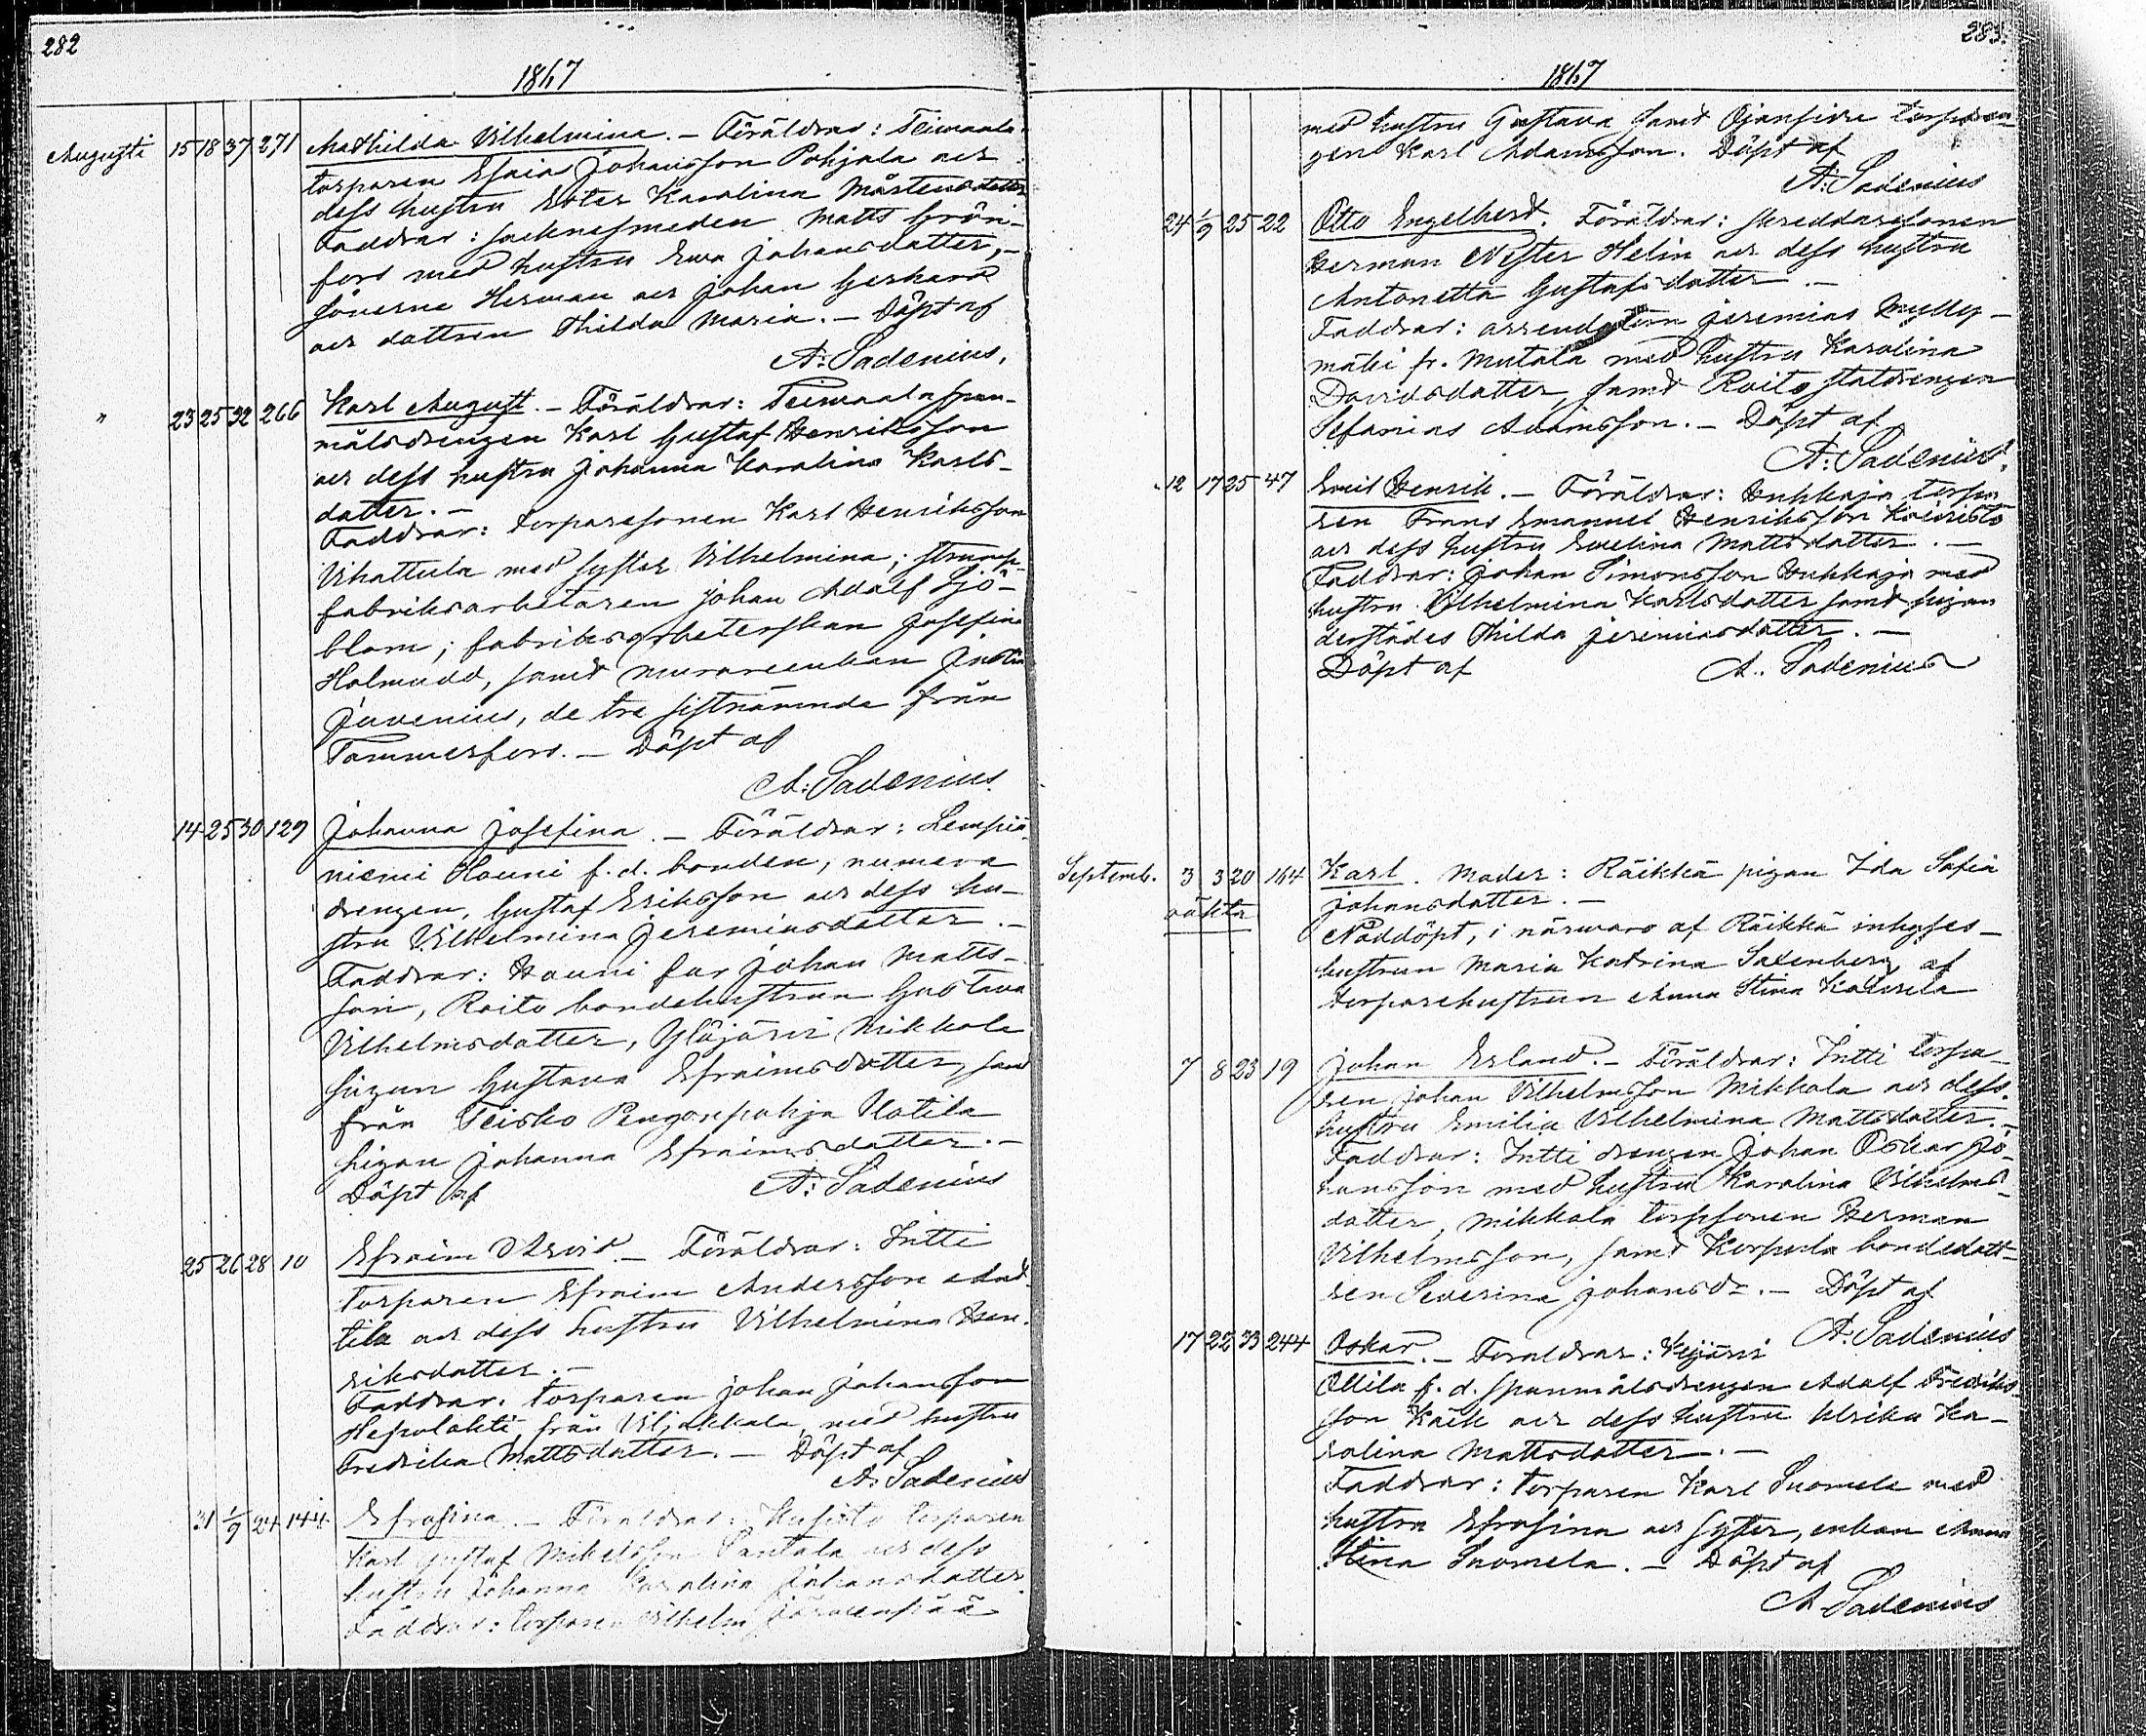 282
1867
Augusti 15 18 37 271 Mathilda Vilhelmina. – Föräldrar: Teiwaala
torparen Esaia Johansson Pohjala och
dess hustru Ester Karolina Mårtensdotter
Faddrar: socknesmeden Matts Grön-
fors med hustru Ewa Johansdotter, –
sönerne Herman och Johan Gerhard
och dottren Thilda Maria. – Döpt af
A: Sadenius.
" 23 25 32 266 Karl August. – Föräldrar: Teiwaala span-
målsdrengen Karl Gustaf Henriksson
och dess hustru Johanna Karolina Karls-
dotter. –
Faddrar: torparesonen Karl Henriksson
Vihattula med syster Vilhelmina;
fabriksarbetaren Johan Adolf Sjö-
blom; fabriksarbeterskan Josefina
Holmudd, samt murareenkan
Juvenius, de tre sistnämnde från
Tammerfors. – Döpt af
A: Sadenius.
14 25 30 129 Johanna Josefina. – Föräldrar: Lempiä-
niemi Hauni f. d. bonden, numera
drengen, Gustaf Eriksson och dess hu-
stru Vilhelmina Jeremiasdotter. –
Faddrar: Hauni far Johan Matts-
son, Roito bondehustrun Gustava
Vilhelmsdotter, Ylöjärvi Mikkola
pigan Gustava Efraimsdotter, samt
från Teisko Pengonpohja Uotila
pigan Johanna Efraimsdotter. –
Döpt af A: Sadenius
25 26 28 10 Efraim Arvid – Föräldrar: Intti
torparen Efraim Andersson
tila och dess hustru Vilhelmina Hen-
riksdotter. –
Faddrar: torparen Johan Johansson
Hepolahti från Viljakkala, med hustru
Fredrika Mattsdotter. – Döpt af
A: Sadenius
31 1/9 24 144 Efrosina. – Föräldrar: torparen
Karl Gustaf Mikelsson Santala och dess
hustru Johanna Karolina Johansdotter.
Faddrar: torparen Vilhelm Järvenpää
283.
1867
med hustru Gustava samt Ojansivu torpdren-
gen Karl Adamsson. Döpt af
A: Sadenius
24 1/9 25 22 Otto Engelbert. Föräldrar: skreddaresonen
Herman Helin och dess hustru
Antonetta Gustafsdotter. –
Faddrar: arrendatorn Jeremias Mylly-
mäki fr. Mutala med hustru Karolina
Davidsdotter samt Roito statdrengen
Sefanias Adamsson. – Döpt af
A: Sadenius.
12 17 25 47 Emil Henrik. – Föräldrar: Huhkaja torpa-
ren Frans Emanuel Henriksson Koivisto
och dess hustru Ewelina Mattsdotter. –
Faddrar: Johan Simonsson Huhkaja med
hustru Vilhelmina Karlsdotter samt pigan
derstädes Thilda Jeremiasdotter. –
Döpt af A. Sadenius
Septemb. 3 3 20 164 Karl. Moder: Räikkä pigan Ida Sofia
oäkta Johansdotter. –
Nöddöpt, i närwaro af Räikkä inhyses-
hustrun Maria Katrina Saxenberg, af
torparehustrun Anna Stina
7 8 23 19 Johan Erland. – Föräldrar: Intti torpa-
ren Johan Vilhelmsson Mikkola och dess
hustru Emilia Vilhelmina Mattsdotter. –
Faddrar: Intti drengen Johan Oskar Jo-
hansson med hustru Karolina Vilhelms-
dotter, Mikkola torpsonen Herman
Vilhelmsson, samt Korpula bondedott-
ren Severina Johansdr. – Döpt af
A: Sadenius
17 22 33 244 Oskar. – Föräldrar: Keijärvi
Ollila f. d. spanmålsdrengen Adolf Fredriks-
son Käck och dess hustru Ulrika Ka-
rolina Mattsdotter. –
Faddrar: torparen Karl Suomela med
hustru Efrosina och syster, enkan Anna
Stina Suomela. – Döpt af
A Sadenius